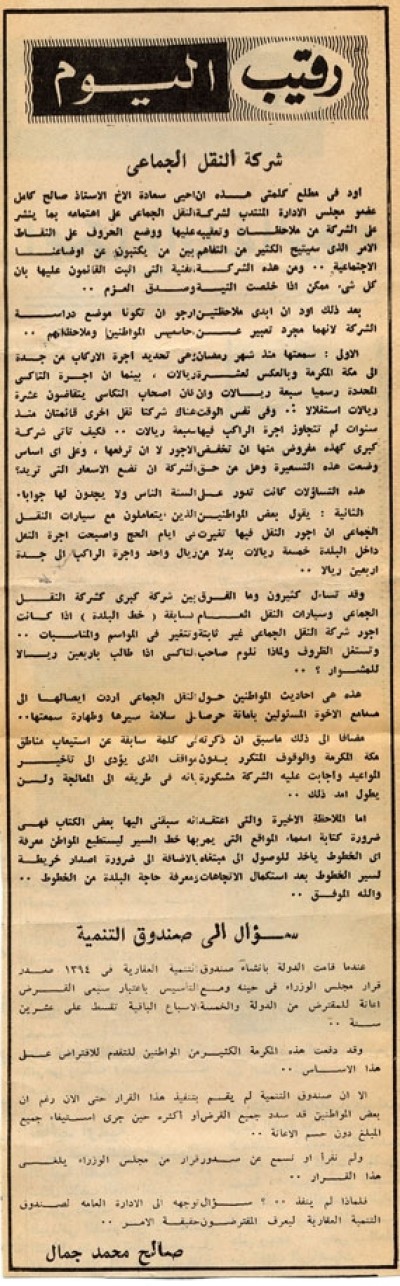 رقيب اليوم
شركة النقل الجماعى
اود فى مطلع كلمتى هذه ان احيى سعادة الاخ الاستاذ صالح كامل
عضو مجلس الادارة المنتدب لشركة النقل الجماعى على اهتمامه بما ينشر
على الشركة من ملاحظات وتعقيبه عليها ووضع الحروف على النقاط
الامر الذى سيتيح الكثير من التفاهم بين من يكتبون عن اوضاعنا
الاجتماعية ٠٠ ومن هذه الشركة الفتية التى اثبت القائمون عليها بان
كل شىء ممكن اذا خلصت النية وصدق العزم ٠٠
بعد ذلك اود ان ابدى ملاحظتين ارجو ان تكونا موضع دراسة
الشركة لانهما مجرد تعبير عن احاسيس المواطنين وملاحظاتهم ٠٠
الاولى : سمعتها منذ شهر رمضان وهى تحديد اجرة الاركاب من جدة
الى مكة المكرمة وبالعكس لعشرة ريالات ، بينما ان اجرة التاكسى
المحددة رسميا سبعة ريالات وان كان اصحاب التكاسى يتقاضون عشرة
ريالات استغلالا ٠٠ وفى نفس الوقت هناك شركتا نقل اخرى قائمتان منذ
سنوات لم تتجاوز اجرة الراكب فيها سبعة ريالات ٠٠ فكيف تأتى شركة
كبرى كهذه مفروض منها ان تخفض الاجور لا ان ترفعها ، وعلى اى اساس
وضعت هذه التسعيرة وهل من حق الشركة ان تضع الاسعار التى تريد؟
هذه التساؤلات كانت تدور على السنة الناس ولا يجدون لها جوابا٠
الثانية : يقول بعض المواطنين الذين يتعاملون مع سيارات النقل
الجماعى ان اجور النقل فيها تغيرت فى ايام الحج واصبحت اجرة النقل
داخل البلدة خمسة ريالات بدلا من ريال واحد واجرة الراكب الى جدة
اربعين ريالا ٠٠
وقد تساءل كثيرون وما الفرق بين شركة كبرى كشركة النقل
الجماعى وسيارات النقل العام سابقة ( خط البلدة ) اذا كانت
اجور شركة النقل الجماعى غير ثابتة وتتغير فى المواسم والمناسبات ٠٠
وتستغل الظروف ولماذا نلوم صاحب التاكسى اذا طالب باربعين ريالا
للمشوار ؟ ٠٠
هذه هى احاديث المواطنين حول النقل الجماعى اردت ايصالها الى
مسامع الاخوة المسئولين بامانة حرصا على سلامة سيرها وطهارة سمعتها٠٠
مضافا الى ذلك ماسبق ان ذكرته فى كلمة سابقة عن استيعاب مناطق
مكة المكرمة والوقوف المتكرر بدون مواقف الذى يؤدى الى تاخير
المواعيد واجابت عليه الشركة مشكورة بانه فى طريقه الى المعالجة ولن
يطول امد ذلك ٠٠
اما الملاحظة الاخيرة والتى اعتقد انه سبقنى اليها بعض الكتاب فهى
ضرورة كتابة اسماء المواقع التى يمر بها خط السير ليستطيع المواطن معرفة
اى الخطوط ياخذ للوصول الى مبتغاه بالاضافة الى ضرورة اصدار خريطة
لسير الخطوط بعد استكمال الاتجاهات ومعرفة حاجة البلدة من الخطوط ٠٠
والله الموفق ٠٠
سؤال الى صندوق التنمية
عندما قامت الدولة بانشاء صندوق التنمية العقارية فى ١٣٩٤ صدر
قرار مجلس الوزراء فى حينه ومع التأسيس باعتبار سبعى القرض
اعانة للمقترض من الدولة والخمسة الاسباع الباقية تقسط على عشرين
سنة ٠٠
وقد دفعت هذه المكرمة الكثير من المواطنين للتقدم للاقتراض على
هذا الاساس ٠٠
الا ان صندوق التنمية لم يقم بتنفيذ هذا القرار حتى الان رغم ان
بعض المواطنين قد سدد جميع القرض او اكثره حين جرى استيفاء جميع
المبلغ دون حسم الاعانة ٠٠
ولم نقرأ او نسمع عن صدور قرار من مجلس الوزراء يلغى
هذا القرار ٠٠
فلماذا لم ينفذ ٠٠ ؟ سؤال نوجهه الى الادارة العامه لصندوق
التنمية العقارية ليعرف المقترضون حقيقة الامر ٠٠
صالح محمد جمال